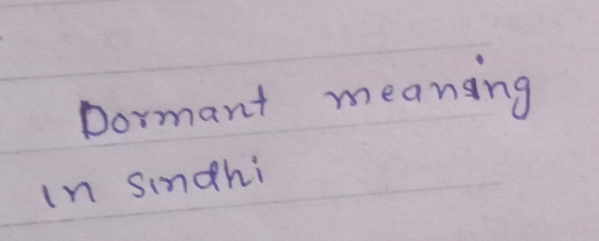 Dormant meaning
in sindhi